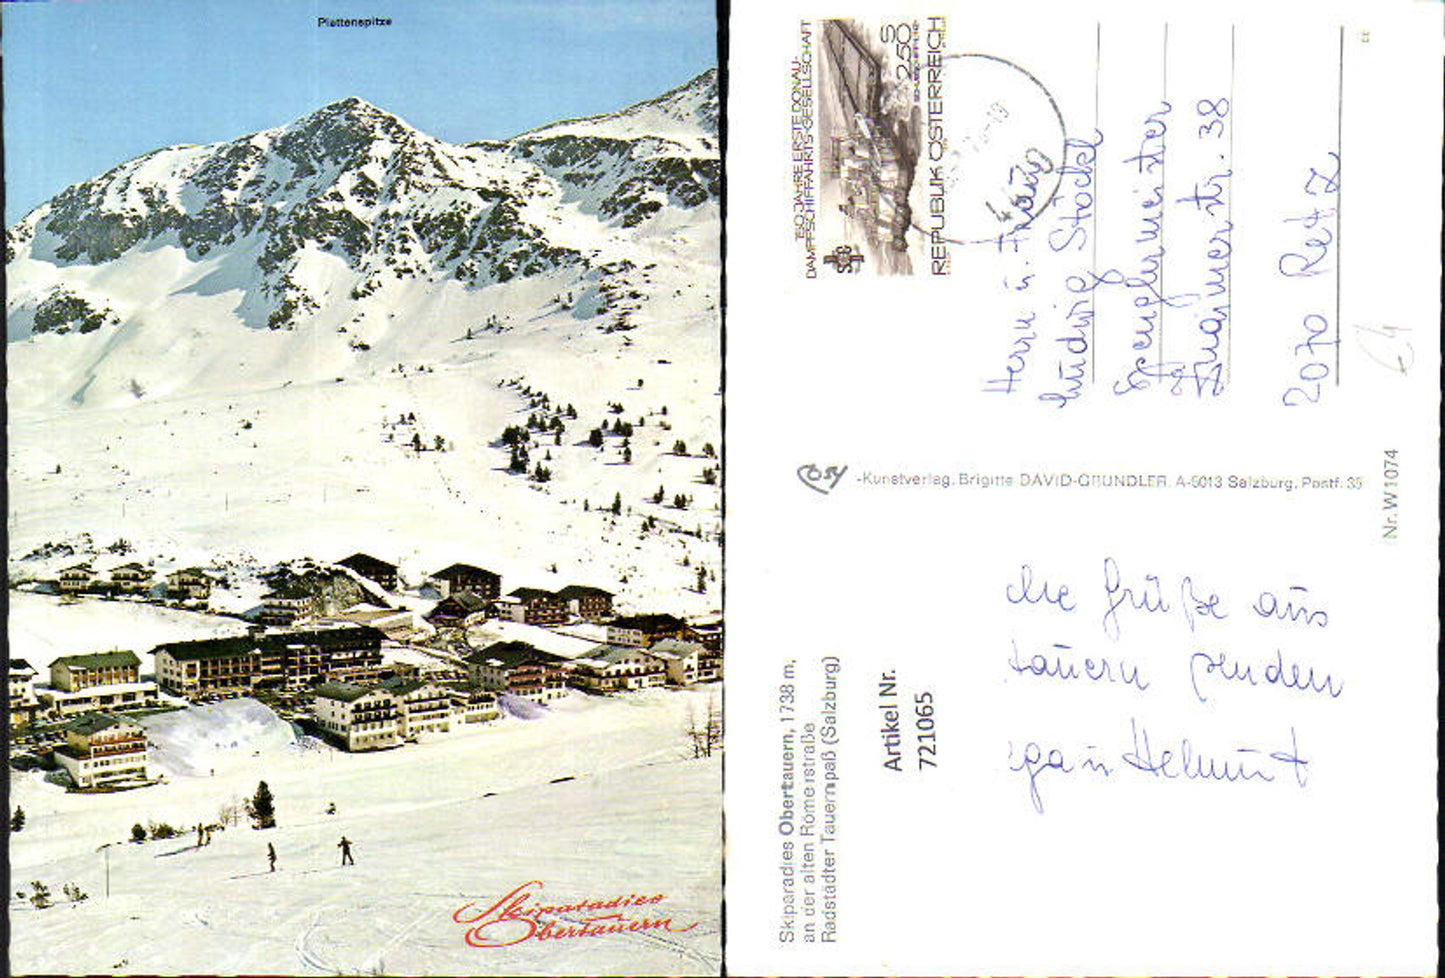 Plattenspitze
Skiparadies
Obertauern
150 JAHRE ERSTE DONAU-
DAMPFSCHIFFAHRTS-GESELLSCHAFT
S 2.50
REPUBLIK ÖSTERREICH
Herrn u. Frau
Ludwig Stöckl
Spenglermeister
Znaimerstr. 38
2070 Retz
€ 4
Cosy -Kunstverlag, Brigitte DAVID-GRÜNDLER, A-5013 Salzburg, Postf. 35
Nr. W1074
Skiparadies Obertauern, 1738 m,
an der alten Römerstraße
Radstädter Tauernpaß (Salzburg)
Artikel Nr.
721065
che Grüße aus
tauern senden
ga u. Helmut